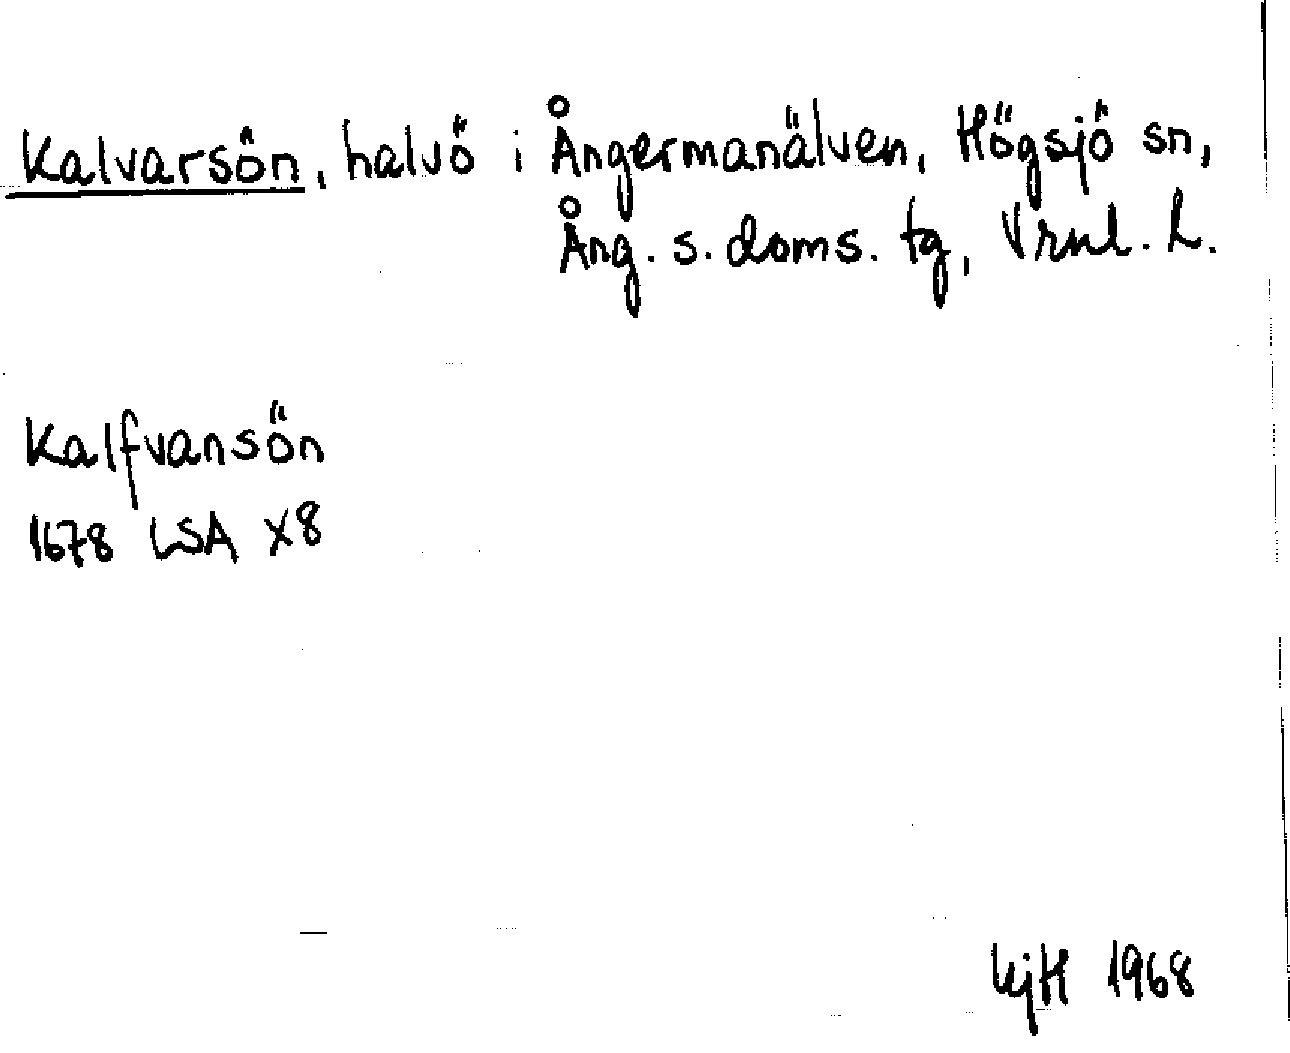 Kalvarsön, halvö i Ångermanälven, Högsjö sn,
Ång. s. doms. tg, Vrnl. L.
Kalfvansön
1678 LSA X8
KjH 1968